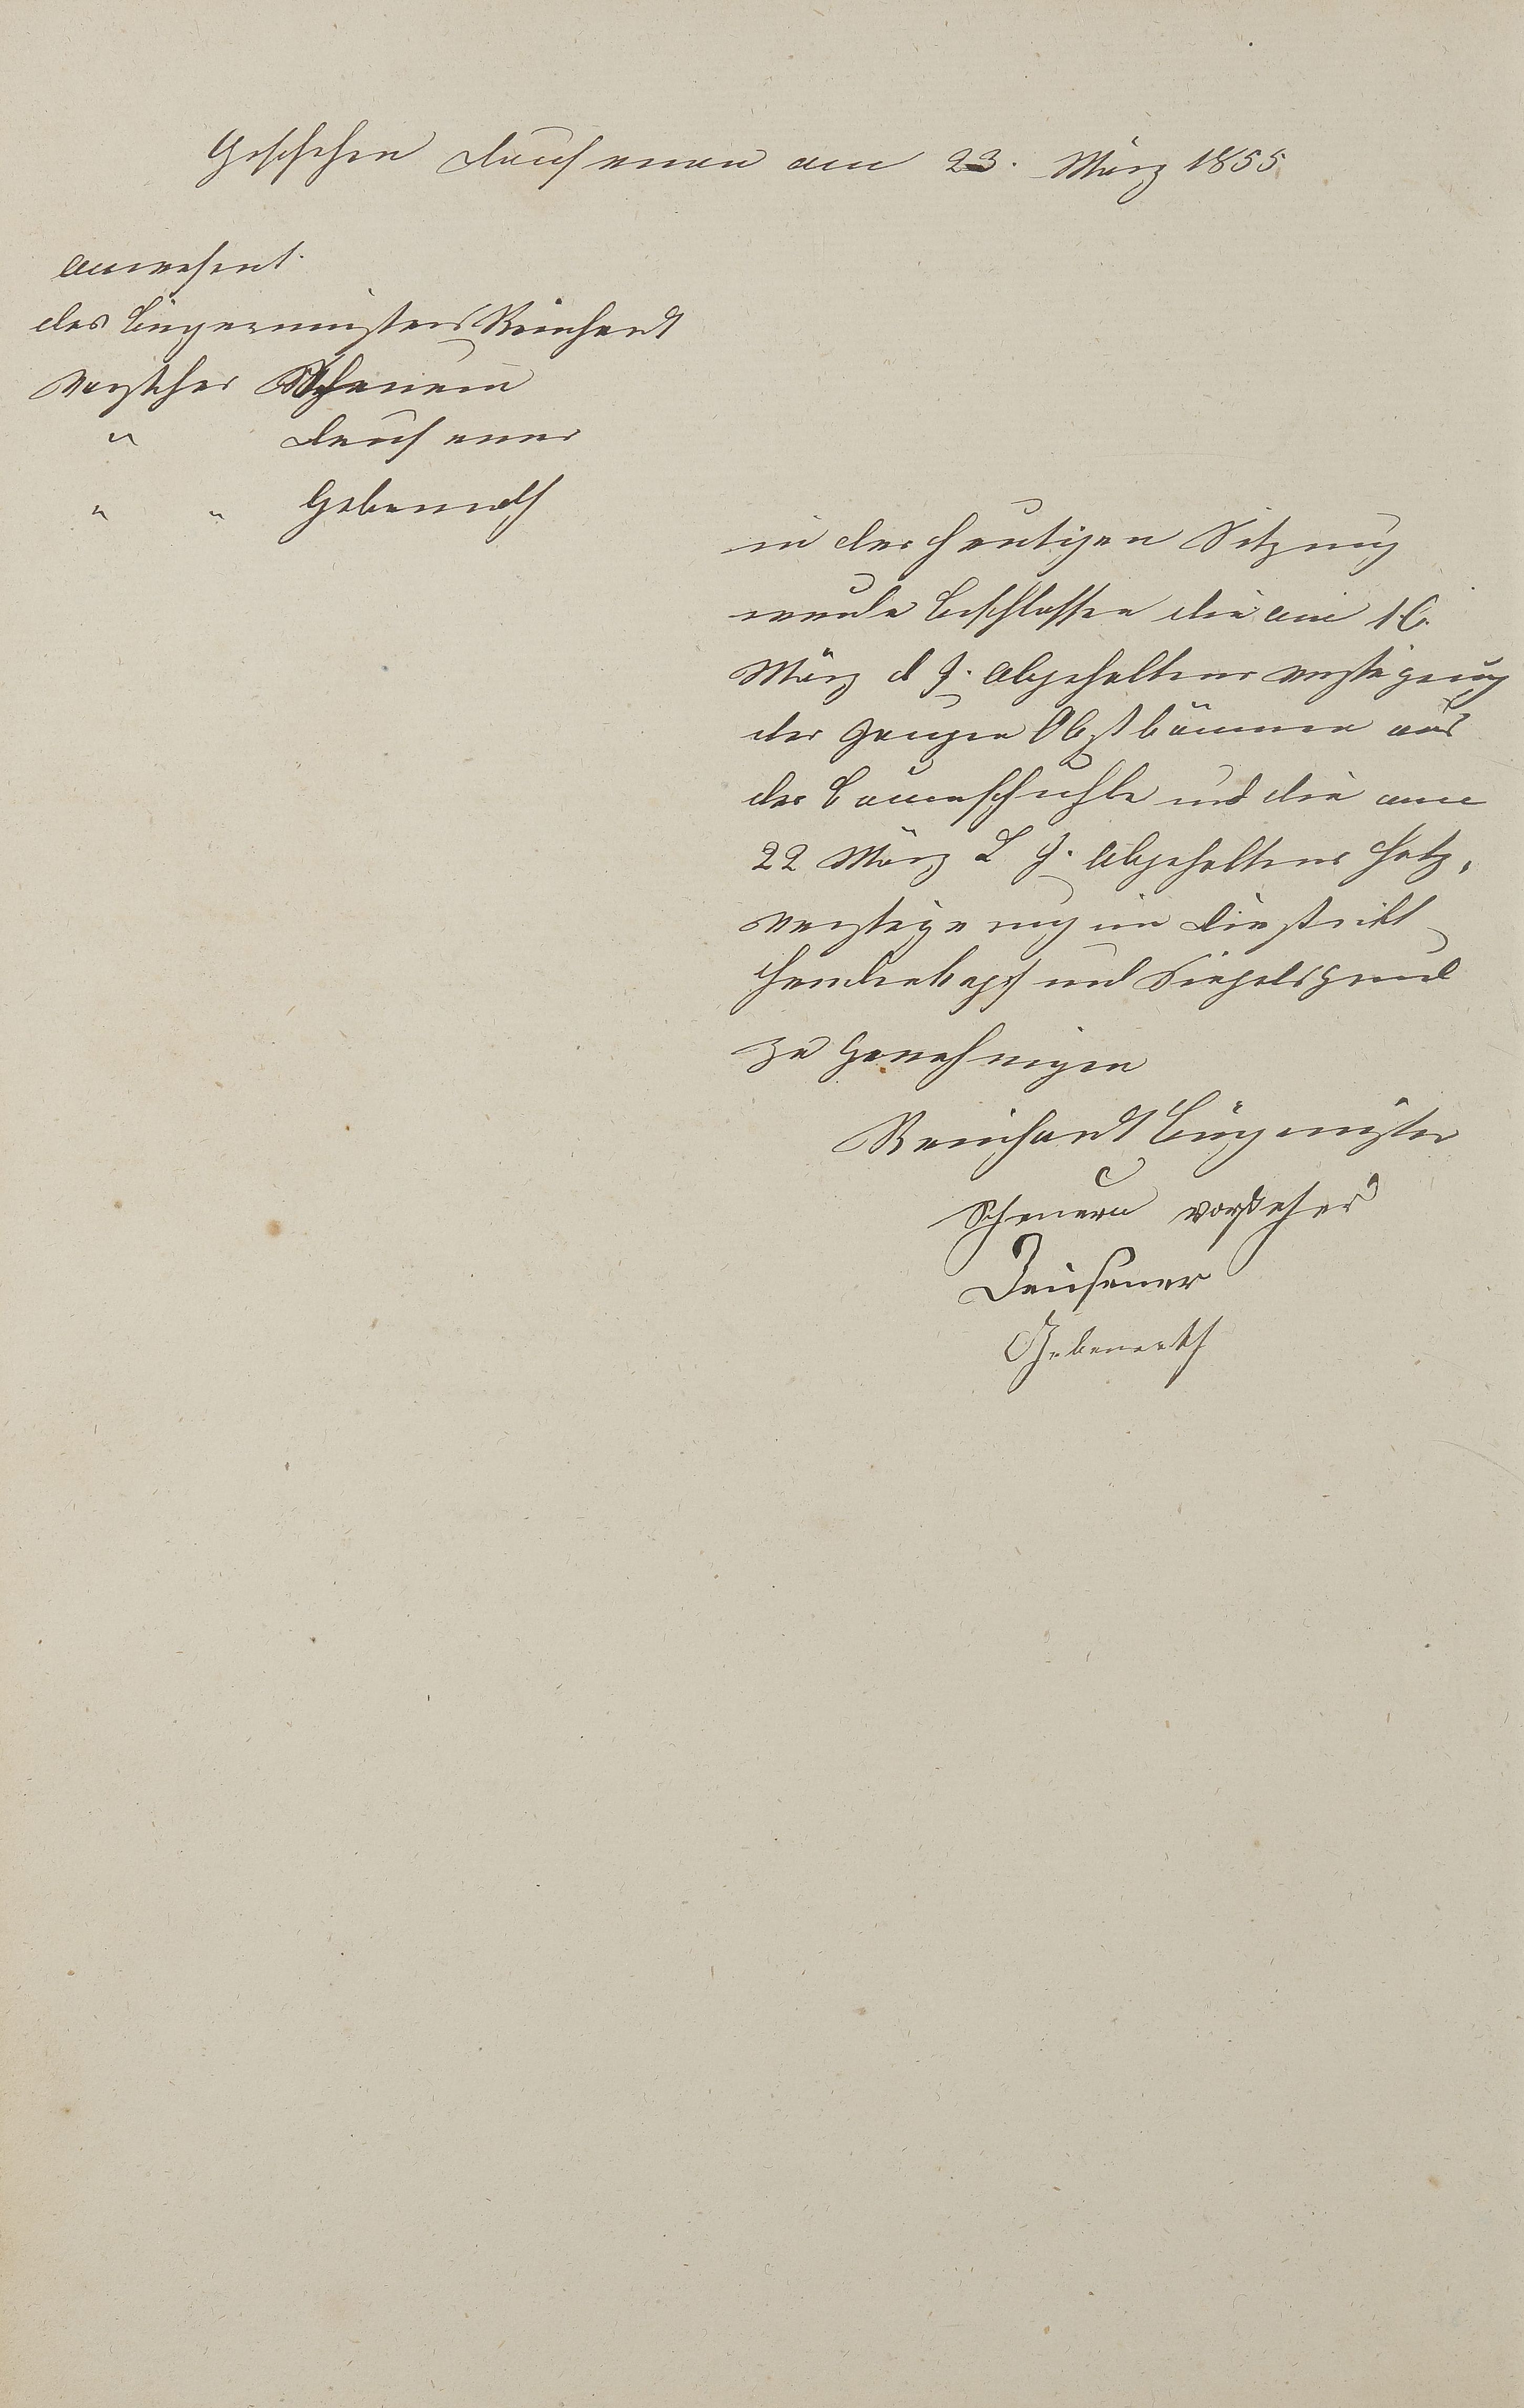 Geschehen Dausenau am 23. März 1855
anwesent
der Bürgermeister Reinhardt
Vorsteher Scheuern
" Dausener
" " Gebenroth
in der heutigen Sitzung
wurde beschlossen die am 16.
März d J. abgehaltene Versteigerung
der jungen Obstbäumen aus
der Baumschuhle und die am
22 März l J. abgehaltene Holz,
versteigerung im Diestrikt
und
zu genehmigen
Reinhardt Bürgermeister
Scheuern Vorsteher
Dausener
Gebenroth